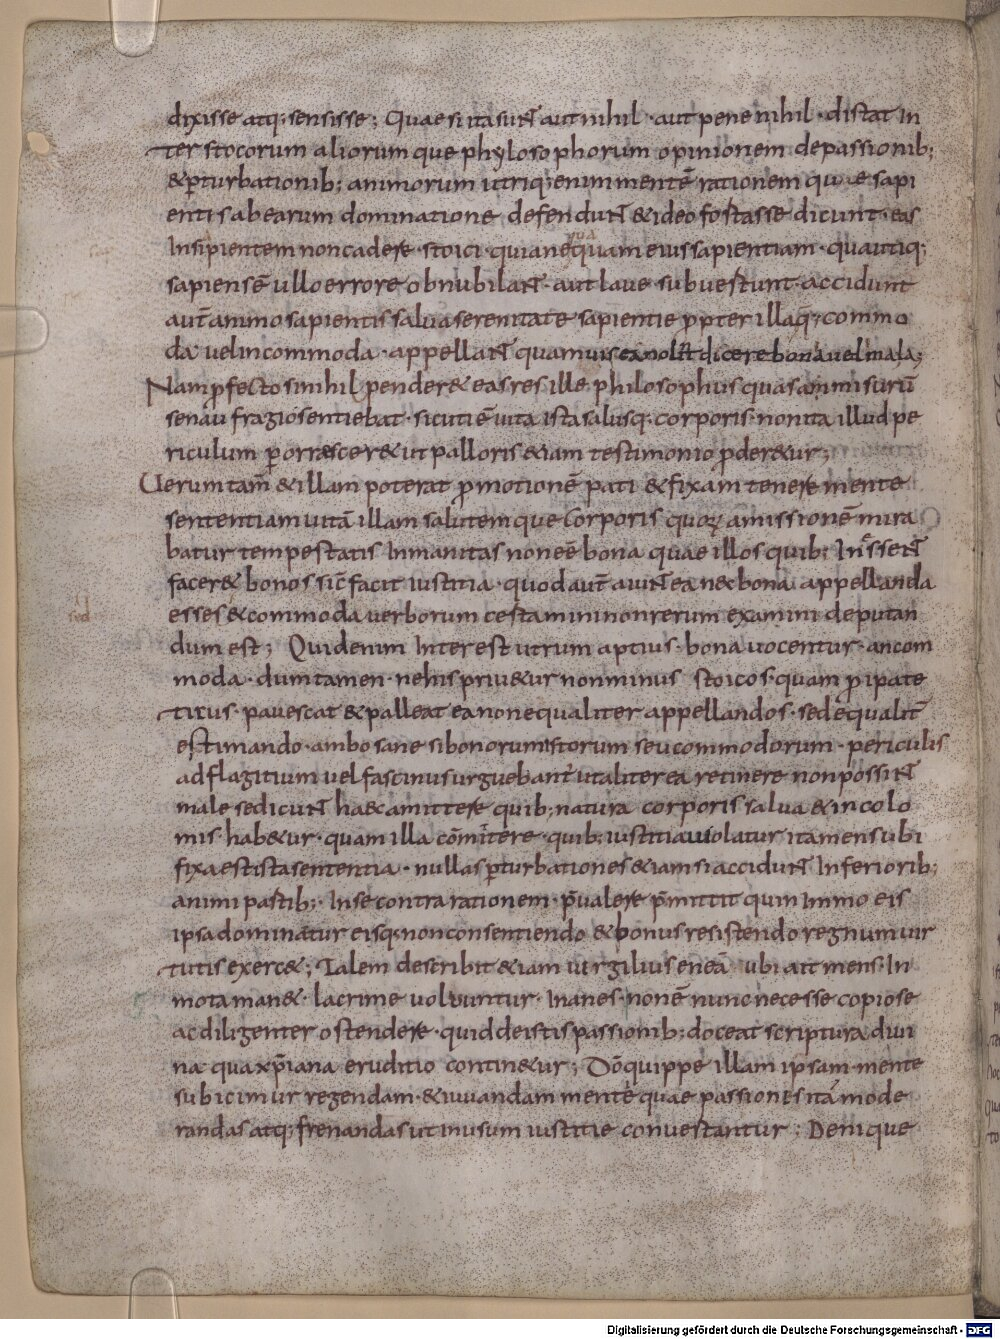 dixisse atq; sensisse; Quae si ita sunt aut nihil · aut pene nihil · distat In
ter stocorum aliorumque phylosophorum opinionem depassionib;
& pturbationib; animorum utriq; enim mentē rationemquae sapi
entis abearum dominatione defendunt & ideo fortasse dicunt · eas
Insipientem noncadere · stoici · quia nequam eius sapientiam · qua utiq;
sapiens ē ullo errore obnubilant · aut laue subuertunt · accidunt
aut̄ animo sapientis salua serenitate sapientie ppter illa q̄; commo
da uel incommoda · appellant quamuis ea nolit dicere bona uel mala;
Nam pfecto si nihil pender& eas res ille philosophus quas ammisurū
se naufragio sentiebat · sicuti ē uita ista salusq; corporis · non ita illud pe
riculum porrescer& ut palloris &iam testimonio pder&ur;
Uerumtam̄ & illam poterat pmotionē pati & fixam tenere mente
sententiam uitā illam salutemque corporis quoꝝ amissionē mina
batur tempestatis Inmanitas non eē bona quae illos quib; Inessent
facer& bonos sic̄ facit iustitia · quod aut̄ aiunt ea nec bona appellanda
esse s& commoda uerborum certamini non rerum examini deputan
dum est; Quid enim Interest utrum aptius · bona uocentur · an com
moda · dum tamen · ne his priu&ur non minus stoicos · quam pipate
ticus · pauescat & palleat ea non equaliter appellandos · sed equalit̄
estimando · ambo sane si bonorum istorum seu commodorum · periculis
ad flagitium uel fascinus urguebant ut aliter ea retinere non possint
male se dicunt haec amittere quib; natura corporis salua & incolo
mis · hab&ur · quam illa cōmitere · quib; iustitia uiolatur ita mens ubi
fixa est ista sententia · nullas pturbationes &iam si accidunt Inferiorib;
animi partib; · In se contra rationem · pualere pmittit quin Immo eis
ipsa dominatur eisq; non consentiendo & bonus resistendo regnum uir
tutis exerc&; Talem describit &iam uirgilius eneā · ubi ait mens · In
mota man& · lacrime uoluuntur · Inanes · non ē nunc necesse copiose
ac diligenter ostendere · quid de istis passionib; doceat scriptura diui
na qua xpiana eruditio contin&ur; Dō quippe illam ipsam mente
subicimur regendam · & iuuandam mente quae passiones ita mode
randas atq; frenandas ut inusum iustitie conuertantur: Denique